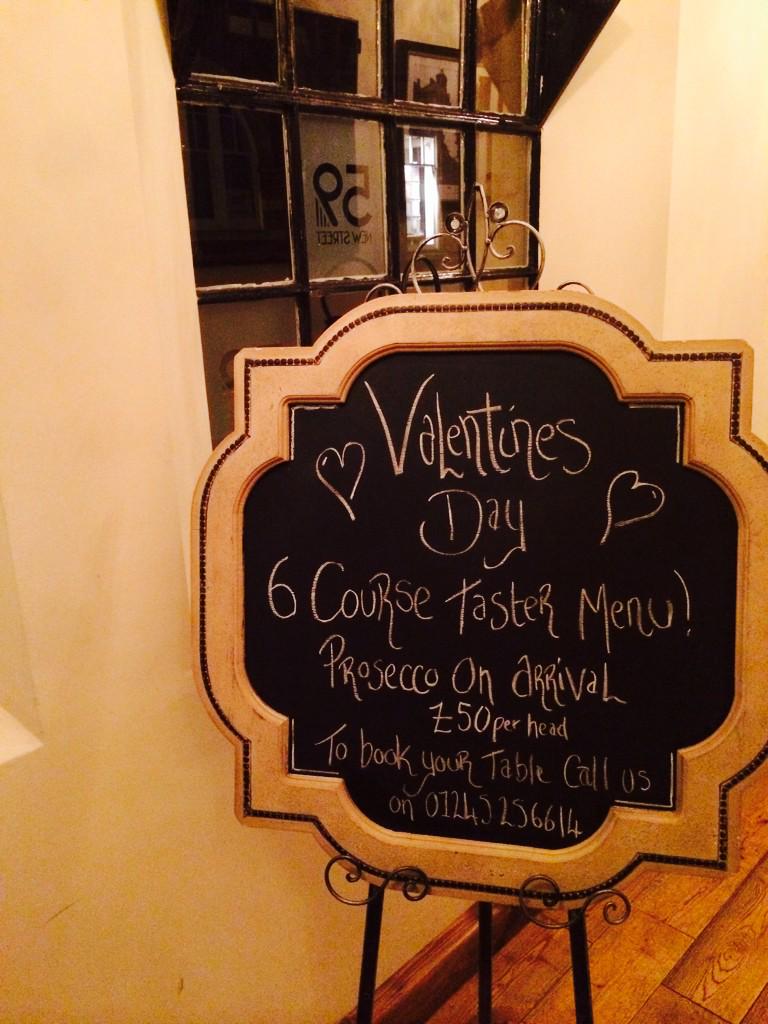 59
NEW STREET
Valentines
Day
6 Course Taster Menu!
Prosecco On Arrival
£50 per head
To book your Table Call us
on 01245 256614